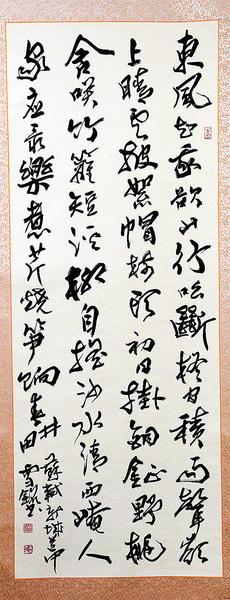 東風知我欲山行吹斷檐間積雨聲嶺
上晴雲披絮帽樹頭初日掛銅鉦野桃
含咲竹籬短溪柳自搖沙水清西崦人
家應最樂煮芹燒筍餉春畊
蘇軾新城道中